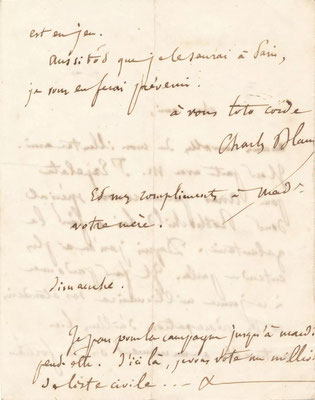 est en jeu.
Aussitôt que je le saurai à Paris,
je vous en ferai prévenir.
à vous toto corde
Charles Blanc
Et mes compliments à Mad.
votre mère.
Dimanche.
Je pars pour la campagne jusqu'à mardi
peut-être. D'ici là, je vous vote un million
de liste civile ...